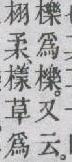 櫟爲櫟。又云、
栩柔、樣草爲